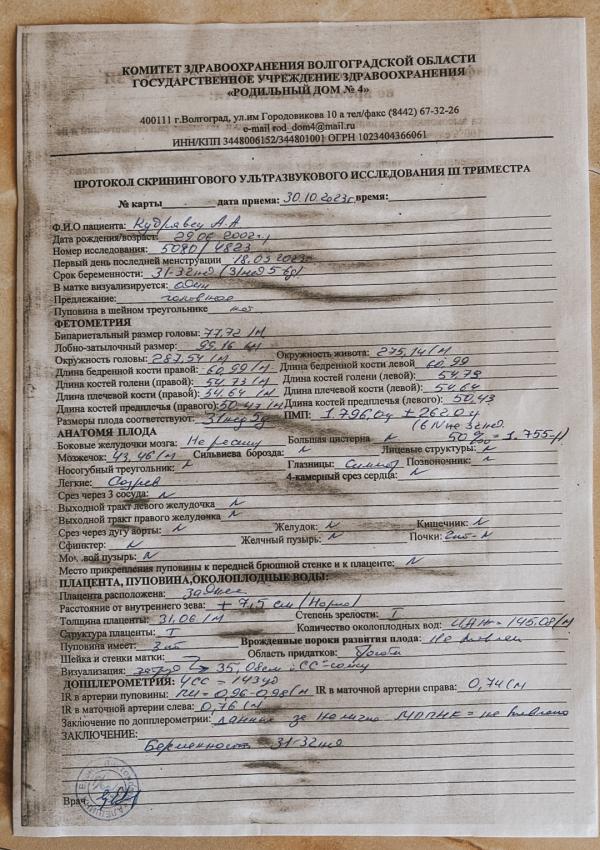 КОМИТЕТ ЗДРАВООХРАНЕНИЯ ВОЛГОГРАДСКОЙ ОБЛАСТИ
ГОСУДАРСТВЕННОЕ УЧРЕЖДЕНИЕ ЗДРАВООХРАНЕНИЯ
«РОДИЛЬНЫЙ ДОМ № 4»
400111 г.Волгоград, ул.им Городовикова 10 а тел/факс (8442) 67-32-26
e-mail rod_dom4@mail.ru
ИНН/КПП 3448006152/344801001 ОГРН 1023404366061
ПРОТОКОЛ СКРИНИНГОВОГО УЛЬТРАЗВУКОВОГО ИССЛЕДОВАНИЯ III ТРИМЕСТРА
№ карты дата приема: 30.10.2023г. время:
Ф.И.О пациента: А.А
Дата рождения/возраст: 29.06.2002г.
Номер исследования: 5080/4823
Первый день последней менструации 18.03.2023г
Срок беременности: 31-32нед (31нед 5 )
В матке визуализируется: один
Предлежание: головное
Пуповина в шейном треугольнике нет
ФЕТОМЕТРИЯ
Бипариетальный размер головы: 77,72
Лобно-затылочный размер: 99.16
Окружность головы: 287,54 Окружность живота: 275,14
Длина бедренной кости правой: 60,99 Длина бедренной кости левой 60,99
Длина костей голени (правой): 54.73 Длина костей голени (левой): 54.79
Длина плечевой кости (правой): 54.64 Длина плечевой кости (левой): 54.64
Длина костей предплечья (правого): 50.43 Длина костей предплечья (левого): 50,43
Размеры плода соответствуют: 31нед 5 ПМП: 1 796,0 ± 262.0
50 % = 1.755
АНАТОМЯ ПЛОДА
Боковые желудочки мозга: Не расш Большая цистерна N
Мозжечок: 43,46 Сильвиева борозда: N Лицевые структуры: N
Носогубный треугольник: N Глазницы: Симмет Позвоночник: N
Легкие: 4-камерный срез сердца: N
Срез через 3 сосуда: N
Выходной тракт левого желудочка N
Выходной тракт правого желудочка N
Срез через дугу аорты: N Желудок: N Кишечник: N
Сфинктер: N Желчный пузырь: N Почки: N
Моч. вой пузырь: N
Место прикрепления пуповины к передней брюшной стенке и к плаценте: N
ПЛАЦЕНТА, ПУПОВИНА,ОКОЛОПЛОДНЫЕ ВОДЫ:
Плацента расположена: задняя
Расстояние от внутреннего зева: + 7,5 см (Норма)
Толщина плаценты: 31,06 Степень зрелости: I
Структура плаценты: I Количество околоплодных вод: ИАЖ = 145.08
Пуповина имеет: 3 Врожденные пороки развития плода: Не
Шейка и стенки матки: Область придатков:
Визуализация: 35,08
ДОППЛЕРОМЕТРИЯ: ЧСС = 143
IR в артерии пуповины: 0,96-0,98 IR в маточной артерии справа: 0,74
IR в маточной артерии слева: 0,76
Заключение по допплерометрии: Данные за МППК =
ЗАКЛЮЧЕНИЕ:
Беременность 31-32нед
Врач: